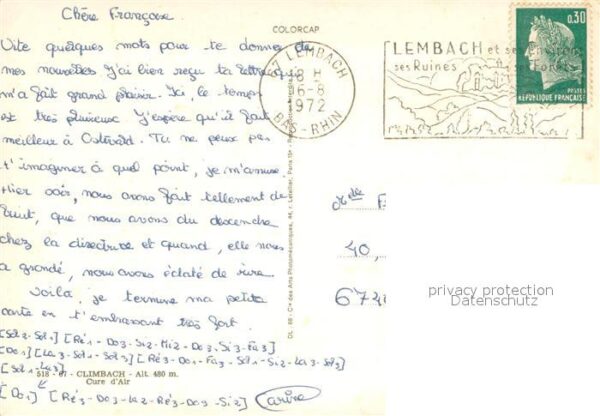 Chère Françoise
Vite quelques mots pour te donner de
mes nouvelles J'ai bien reçu ta lettre
m'a fait grand plaisir. Ici, le temps
est très pluvieux J'espère qu'il fait
meilleur à Ostwald. Tu ne peux pas
t'imaginer à quel point, je m'amuse.
Hier soir, nous avons fait tellement de
bruit, que nous avons du descendre
chez la directrice et quand, elle nous
a grondé, nous avons éclaté de rire.
Voilà, je termine ma petite
carte en t'embrassant très fort.
[Sol2-Sol1] [Ré1-Do3-Si2-Mi2-Do3, Si3-Fa3]
[Do1] [La3-Sol1-Sol3] [Ré3-Do1-Fa3-Sol1-Si2-La3-Sol3]
[Sol1-La3]
518 - 67 - CLIMBACH - Alt. 480 m.
Cure d'Air
[Do1] [Ré3-Do3-La2-Ré3-Do3-Si2]
COLORCAP
67 LEMBACH
18 H
16-8
1972
BAS-RHIN
LEMBACH et ses Environs
ses Ruines
Forêts
0,30
POSTES
RÉPUBLIQUE FRANÇAISE
DL. 68 - Cie des Arts Photomécaniques, 44, r. Letellier, Paris 15e -
Melle F
40,
6740
privacy protection
Datenschutz